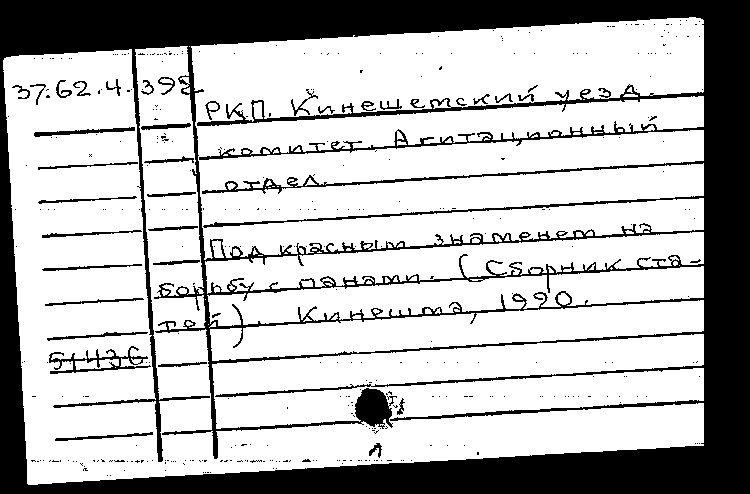 37.62.4.392
РКП. Кинешемский уезд.
комитет. Агитационный
отдел.
Под красным знаменем на
борьбу с панами. (Сборник ста-
тей). Кинешма, 1990.
51436